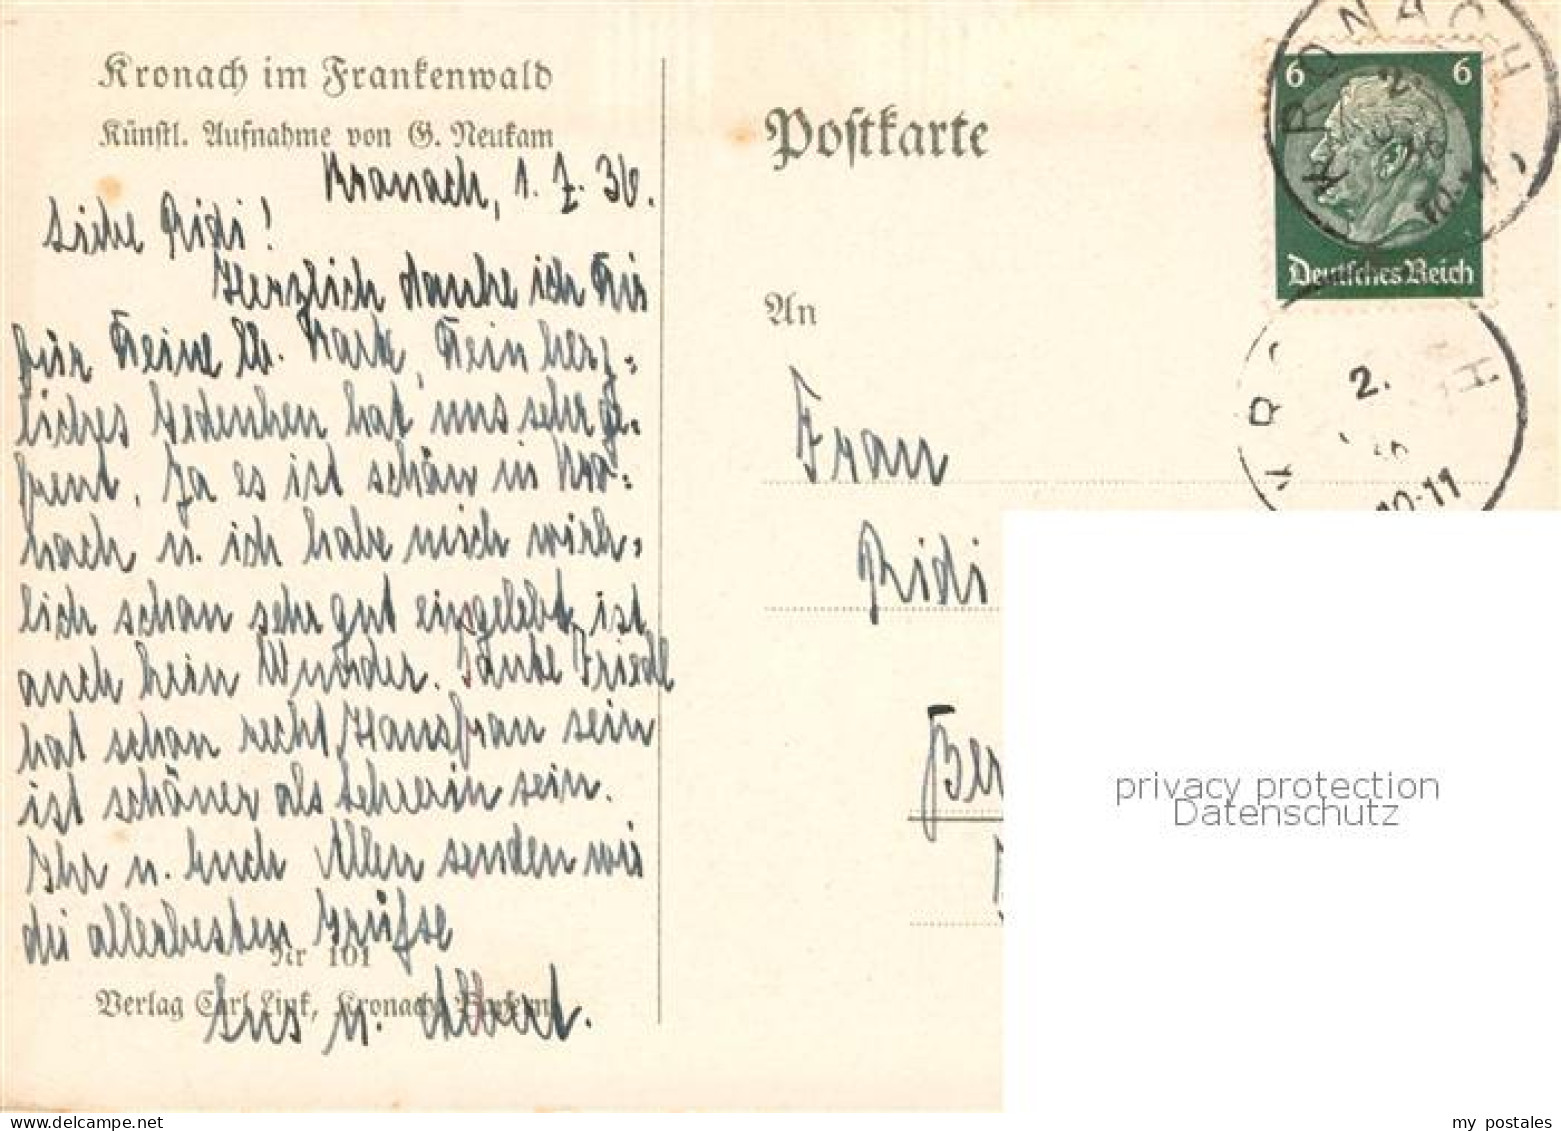 Kronach im Frankenwald
Künstl. Aufnahme von G. Neukam
Kronach, 1. 7. 36.
Liebe Ridi!
Herzlich danke ich Dir
für Deine lb. Karte, Dein herz-
liches Gedenken hat uns sehr ge-
freut. Ja es ist schön in Kro-
nach u. ich habe mich wirk-
lich schon sehr gut eingelebt, ist
auch kein Wunder. Tante Friedl
hat schon recht, Hausfrau sein
ist schöner als Lehrerin sein.
Ihr u. Euch Allen senden wir
die allerbesten Grüße
Nr 101
Verlag Carl Link, Kronach, Bayern
u. Albert.
Postkarte
6 6
Deutsches Reich
KRONACH
An
Frau
Ridi
2.
10-11
privacy protection
Datenschutz
delcampe.net
my_postales